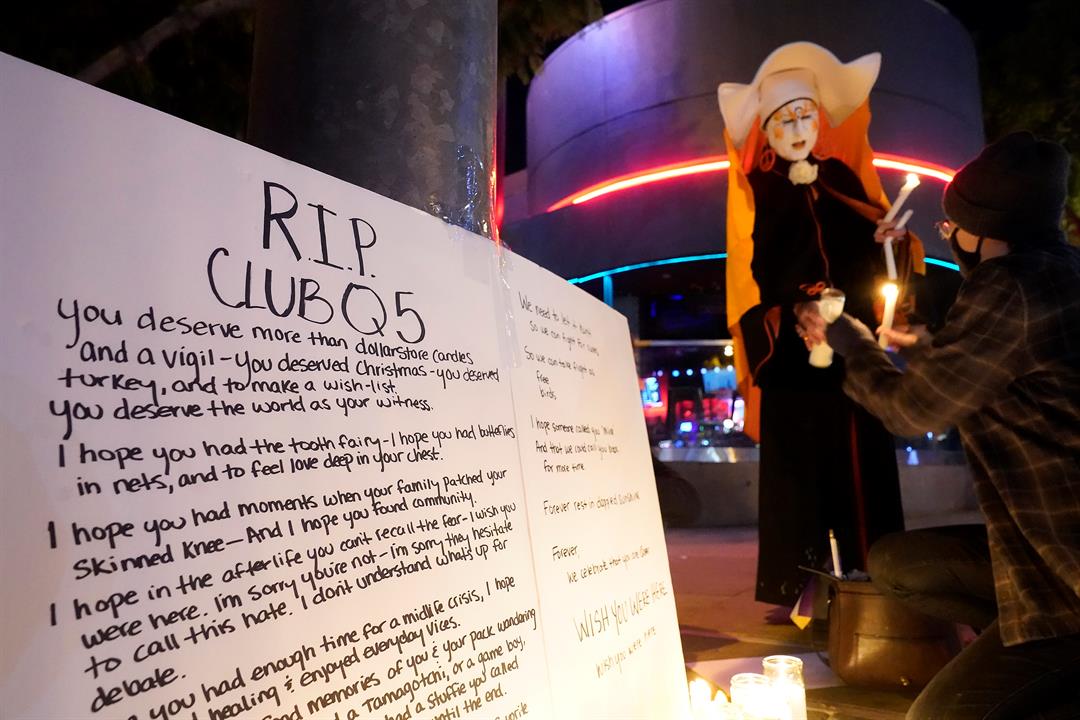 R.I.P.
CLUB Q 5
you deserve more than dollarstore candles
and a vigil - you deserved Christmas - you deserved
turkey, and to make a wish-list.
you deserve the world as your witness.
I hope you had the tooth fairy - I hope you had butterflies
in nets, and to feel love deep in your chest.
I hope you had moments when your family patched your
skinned knee - And I hope you found community.
I hope in the afterlife you can't recall the fear - I wish you
were here. I'm sorry you're not - i'm sorry they hesitate
to call this hate. I don't understand what's up for
debate.
you had enough time for a midlife crisis, I hope
healing & enjoyed everyday vices.
memories of you & your pack wandering
a Tamagotchi, or a game boy,
had a stuffie you called
until the end.
We need to let it
so we can fight for
So we can take flight as
free
birds.
I hope someone called you
And that we could call you
for more time.
Forever rest in dappled sunshine
Forever,
We celebrate that you are
WISH YOU WERE HERE
wish you were here